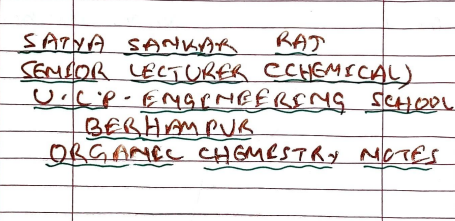 SATYA SANKAR RAJ
SENIOR LECTURER (CHEMICAL)
U.C.P. ENGINEERING SCHOOL
BERHAMPUR
ORGANIC CHEMISTRY NOTES